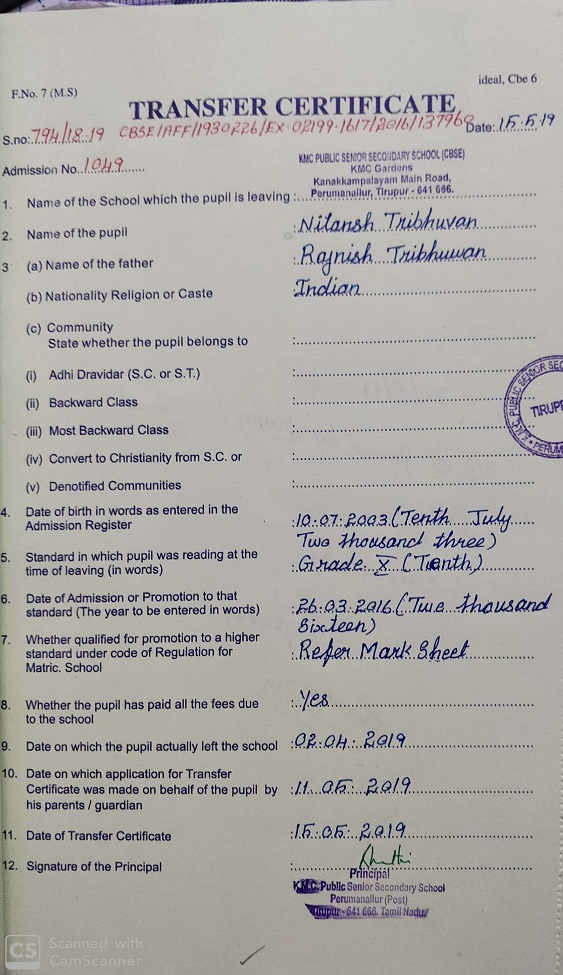 ideal, Cbe 6
F.No. 7 (M.S)
TRANSFER CERTIFICATE
S.no: 794/18-19 CBSE/AFF/1930226/EX-02199-1617/2016/137968 Date: 15.5.19
Admission No. 1049
KMC PUBLIC SENIOR SECONDARY SCHOOL (CBSE)
KMC Gardens
Kanakkampalayam Main Road,
Perumanallur, Tirupur - 641 666.
1. Name of the School which the pupil is leaving :
2. Name of the pupil : Nitansh Tribhuvan
3 (a) Name of the father : Rajnish Tribhuwan
(b) Nationality Religion or Caste : Indian
(c) Community
State whether the pupil belongs to :
(i) Adhi Dravidar (S.C. or S.T.) :
(ii) Backward Class :
(iii) Most Backward Class :
(iv) Convert to Christianity from S.C. or :
(v) Denotified Communities :
K.M.C. PUBLIC SENIOR SEC
TIRUP
PERUM
4. Date of birth in words as entered in the
Admission Register : 10.07.2003 (Tenth July
Two thousand three)
5. Standard in which pupil was reading at the
time of leaving (in words) : Grade X (Tenth)
6. Date of Admission or Promotion to that
standard (The year to be entered in words) : 26.03.2016 (Two thousand
Sixteen)
7. Whether qualified for promotion to a higher
standard under code of Regulation for : Refer Mark Sheet
Matric. School
8. Whether the pupil has paid all the fees due : Yes
to the school
9. Date on which the pupil actually left the school : 02.04.2019
10. Date on which application for Transfer
Certificate was made on behalf of the pupil by : 11.05.2019
his parents / guardian
11. Date of Transfer Certificate : 15.05.2019
12. Signature of the Principal :
Principal
KMC Public Senior Secondary School
Perumanallur (Post)
Tirupur - 641 666. Tamil Nadu
CS Scanned with
CamScanner